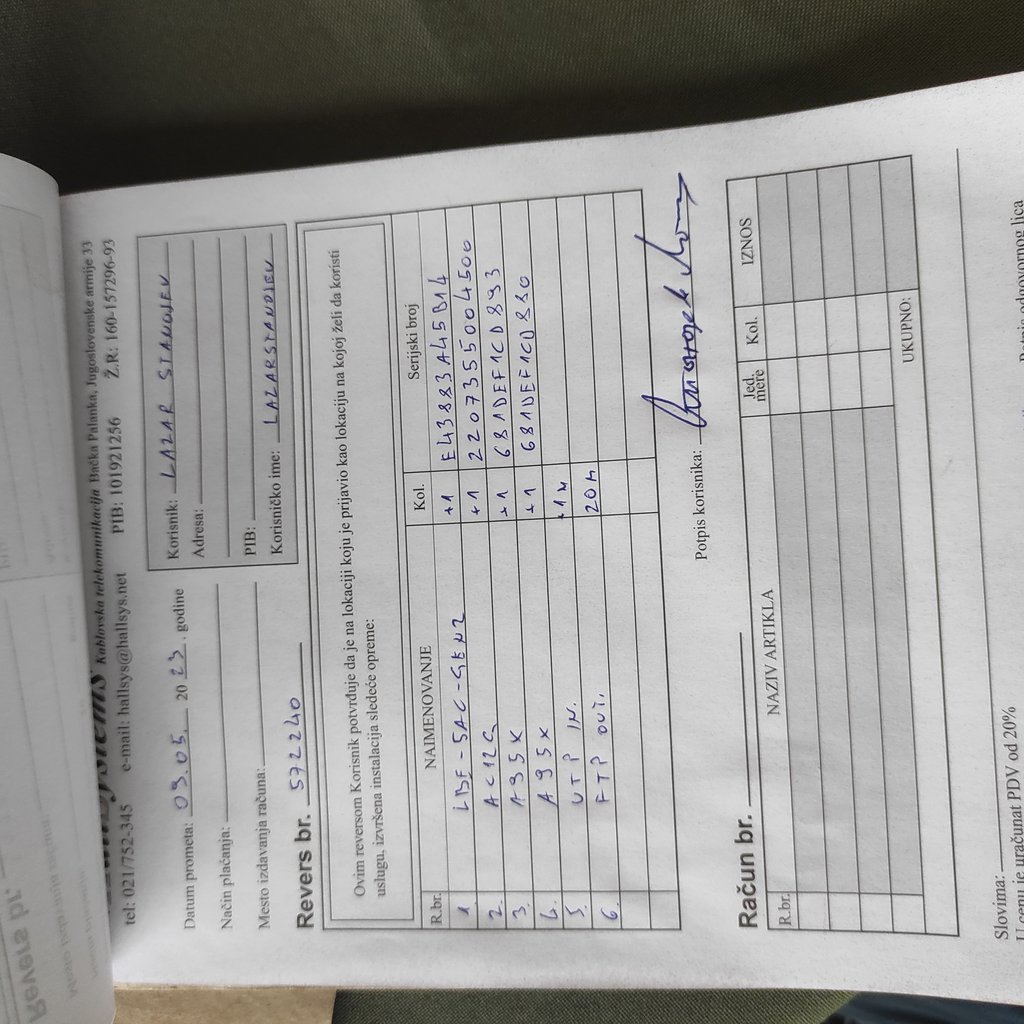 Kablovska telekomunikacija Bačka Palanka, Jugoslovenske armije 33
tel: 021/752-345 e-mail: hallsys@hallsys.net PIB: 101921256 Ž.R: 160-157296-93
Datum prometa: 09.05. 2023. godine
Način plaćanja:
Mesto izdavanja računa:
Korisnik: LAZAR STANOJEV
Adresa:
PIB:
Korisničko ime: LAZARSTANOJEV
Revers br. 572240
Ovim reversom Korisnik potvrđuje da je na lokaciji koju je prijavio kao lokaciju na kojoj želi da koristi
uslugu, izvršena instalacija sledeće opreme:
R.br. NAIMENOVANJE Kol. Serijski broj
1 LBE-5AC-GEN2 +1 E43883A45B14
2. AC12G +1 2207355004500
3. A95X +1 681DEF1CD893
4. A95X +1 681DEF1CD880
5. UTP IN. +1m
6. FTP OUT. 20m
Potpis korisnika:
Račun br.
R.br. NAZIV ARTIKLA Jed. mere Kol. IZNOS
UKUPNO:
Slovima:
U cenu je uračunat PDV od 20%
Potpis odgovornog lica